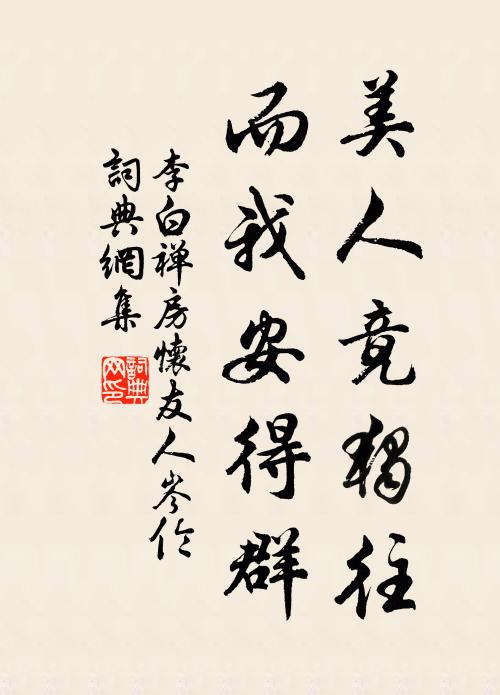 美人竟獨往
而我安得群
李白禅房懷友人岑伦
詞典網集
詞典网印